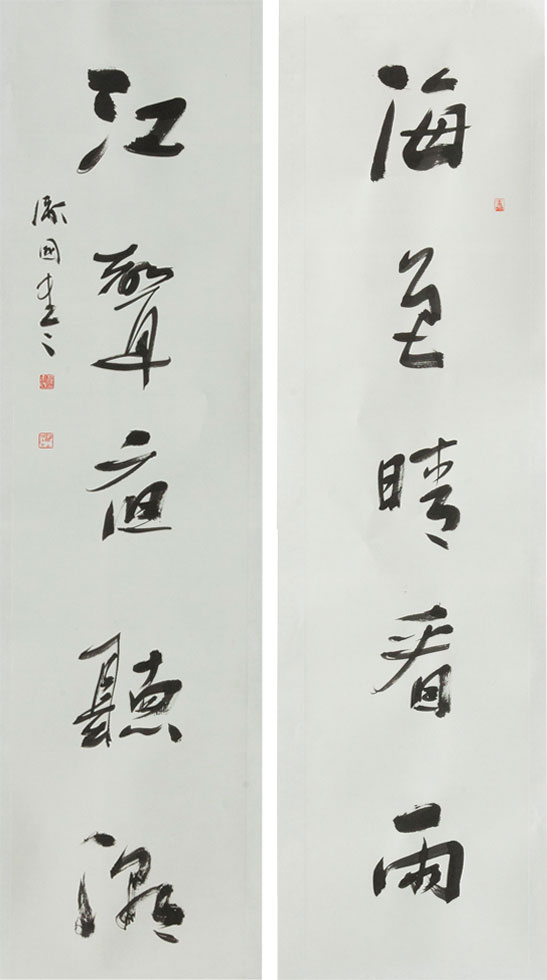 海色晴看雨
江聲夜聽潮
國書